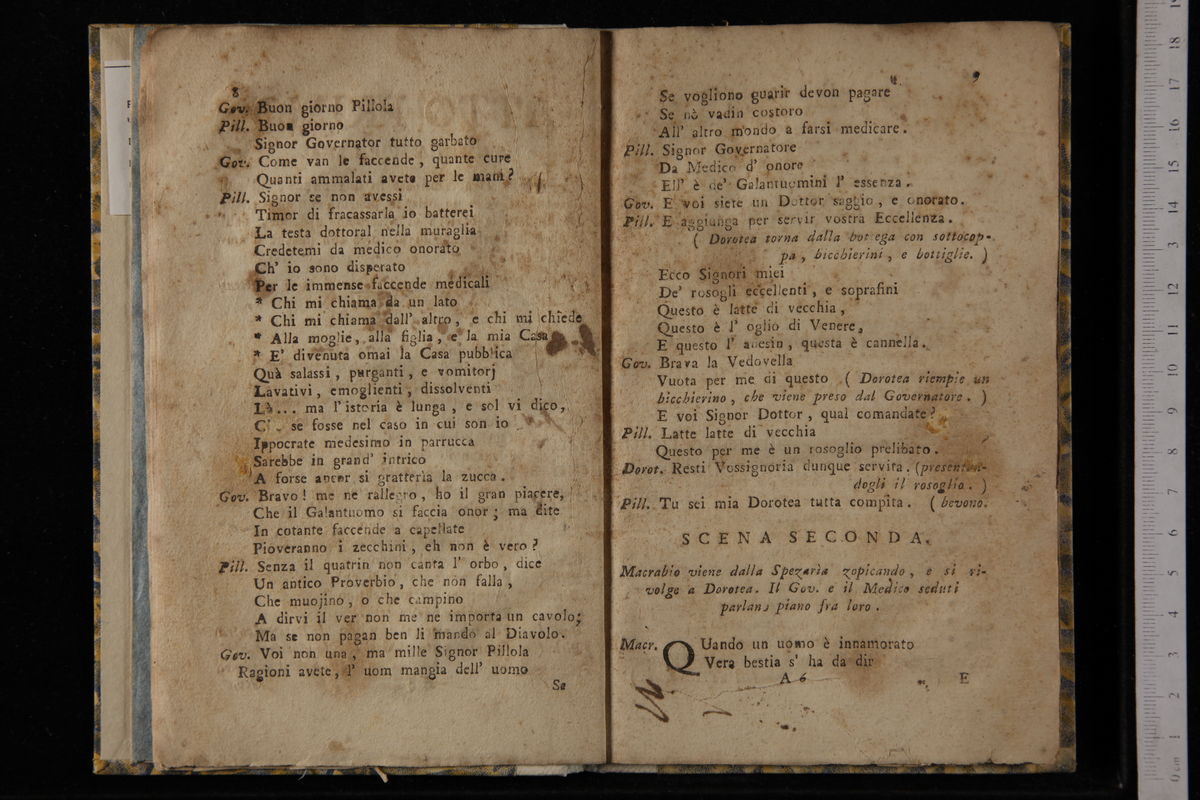 8
Gov. Buon giorno Pillola
Pill. Buon giorno
Signor Governator tutto garbato
Gov. Come van le faccende, quante cure
Quanti ammalati avete per le mani?
Pill. Signor se non avessi
Timor di fracassarla io batterei
La testa dottoral nella muraglia
Credetemi da medico onorato
Ch' io sono disperato
Per le immense faccende medicali
* Chi mi chiama da un lato
* Chi mi chiama dall' altro, e chi mi chiede
* Alla moglie, alla figlia, e la mia Casa
* E' divenuta omai la Casa pubblica
Quà salassi, purganti, e vomitorj
Lavativi, emoglienti, dissolventi
Là... ma l'istoria è lunga, e sol vi dico,
se fosse nel caso in cui son io
Ippocrate medesimo in parrucca
Sarebbe in grand' intrico
A forse ancor si gratteria la zucca.
Gov. Bravo! me ne rallegro, ho il gran piacere,
Che il Galantuomo si faccia onor; ma dite
In cotante faccende a capellate
Pioveranno i zecchini, eh non è vero?
Pill. Senza il quatrin non canta l' orbo, dice
Un antico Proverbio, che non falla,
Che muojino, o che campino
A dirvi il ver non me ne importa un cavolo;
Ma se non pagan ben li mando al Diavolo.
Gov. Voi non una, ma mille Signor Pillola
Ragioni avete, l' uom mangia dell' uomo
Se
9
Se vogliono guarir devon pagare
Se nò vadin costoro
All' altro mondo a farsi medicare.
Pill. Signor Governatore
Da Medico d' onore
Ell' è de' Galantuomini l' essenza.
Gov. E voi siete un Dottor saggio, e onorato.
Pill. E aggiunga per servir vostra Eccellenza.
( Dorotea torna dalla bottega con sottocop-
pa, bicchierini, e bottiglie. )
Ecco Signori miei
De' rosogli eccellenti, e soprafini
Questo è latte di vecchia,
Questo è l' oglio di Venere,
E questo l' anesin, questa è cannella.
Gov. Brava la Vedovella
Vuota per me di questo ( Dorotea riempie un
bicchierino, che viene preso dal Governatore. )
E voi Signor Dottor, qual comandate?
Pill. Latte latte di vecchia
Questo per me è un rosoglio prelibato.
Dorot. Resti Vossignoria dunque servita. (presentan-
dogli il rosoglio. )
Pill. Tu sei mia Dorotea tutta compita. ( bevono.
SCENA SECONDA.
Macrabio viene dalla Spezaria zopicando, e si ri-
volge a Dorotea. Il Gov. e il Medico seduti
parlano piano fra loro.
Macr. QUando un uomo è innamorato
Vera bestia s' ha da dir
A 6
E